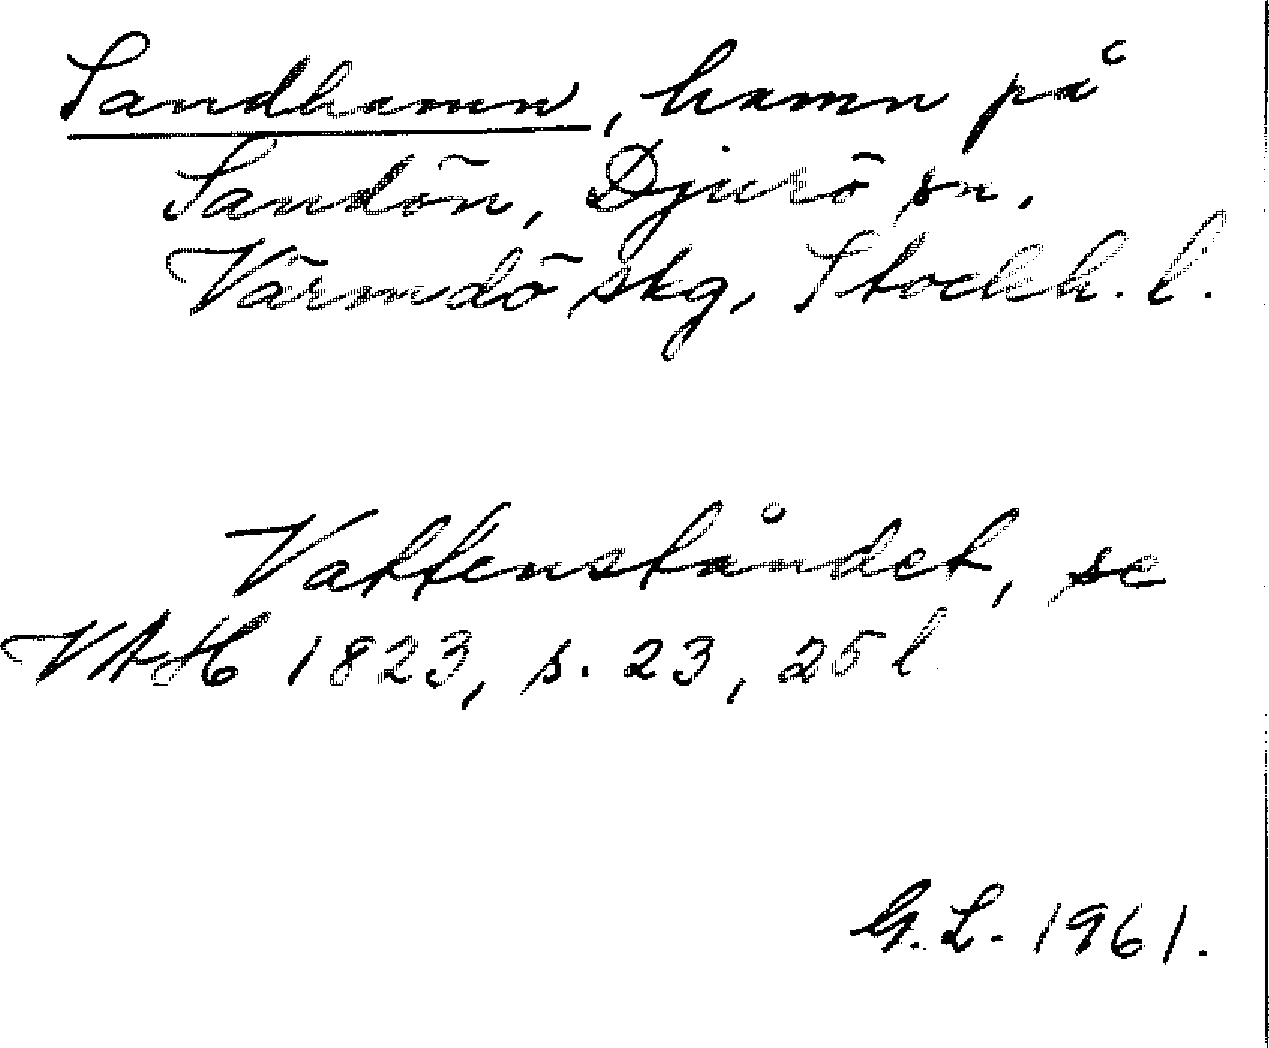 Sandhamn, hamn på
Sandön, Djurö sn.
Värmdö skg, Stockh. l.
Vattenståndet, se
VAH 1823, s. 23, 25 l
G. L. 1961.